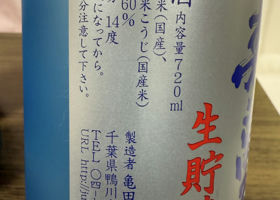 生貯
酒
内容量720ml
米(国産)、
米こうじ(国産米)
60%
14度
になってから。
分注意して下さい。
製造者 亀田
千葉県鴨川
TEL 04-
URL http://